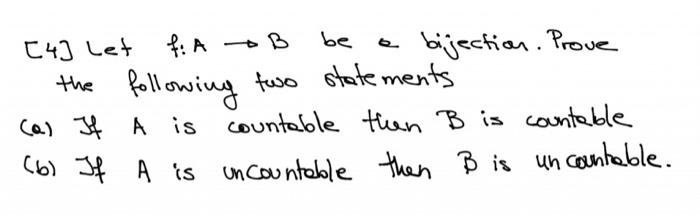 [4] Let f: A → B be a bijection. Prove
the following two statements
(a) If A is countable then B is countable
(b) If A is uncountable then B is uncountable.